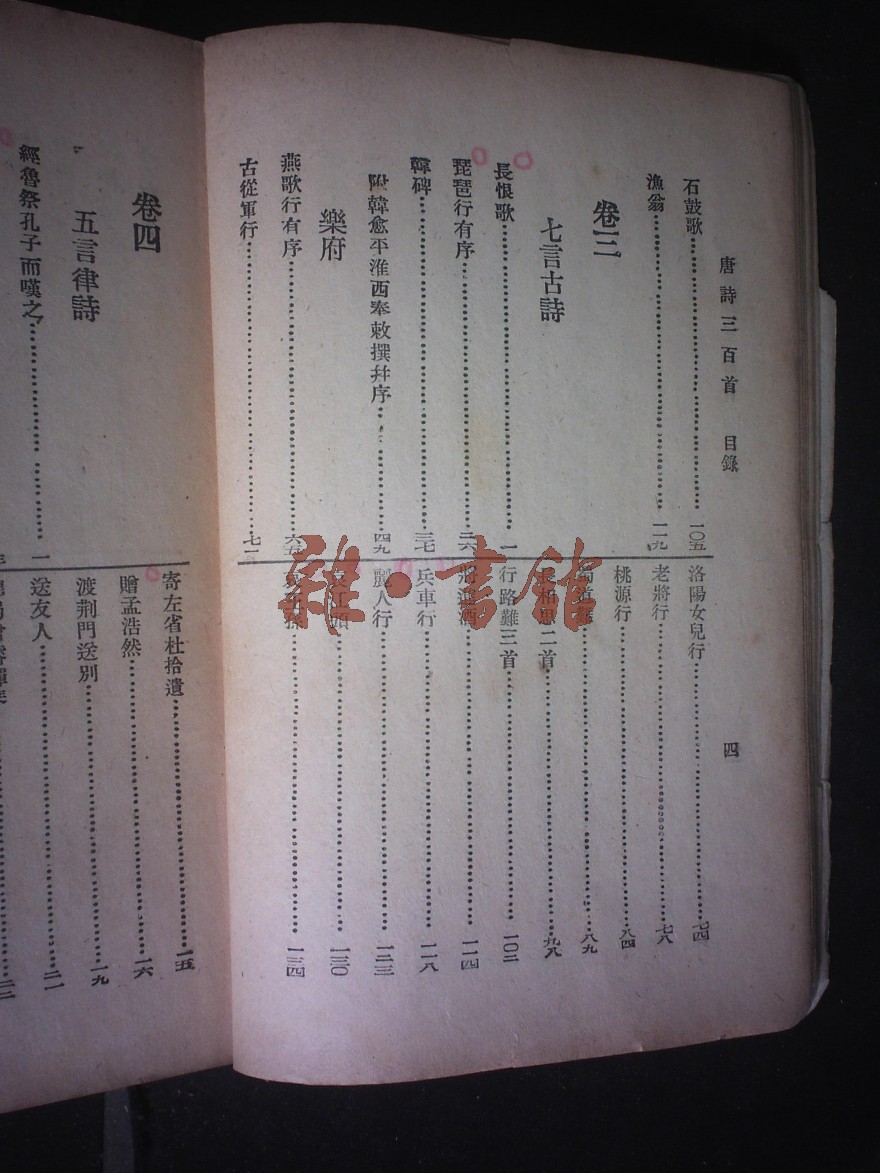 唐詩三百首 目錄
四
石鼓歌 一〇五
漁翁 一一九
卷三
七言古詩
長恨歌 一
琵琶行有序 二六
韓碑 三七
附韓愈平淮西奉敕撰幷序 四九
樂府
燕歌行有序 六五
古從軍行 七二
洛陽女兒行 七四
老將行 七八
桃源行 八四
蜀道難 八九
長相思二首 九八
行路難三首 一〇二
將進酒 一一四
兵車行 一一八
麗人行 一二三
哀江頭 一三〇
哀王孫 一三四
卷四
五言律詩
經魯祭孔子而嘆之 一
寄左省杜拾遺 一五
贈孟浩然 一六
渡荆門送別 一九
送友人 二一
二二
雜·書館